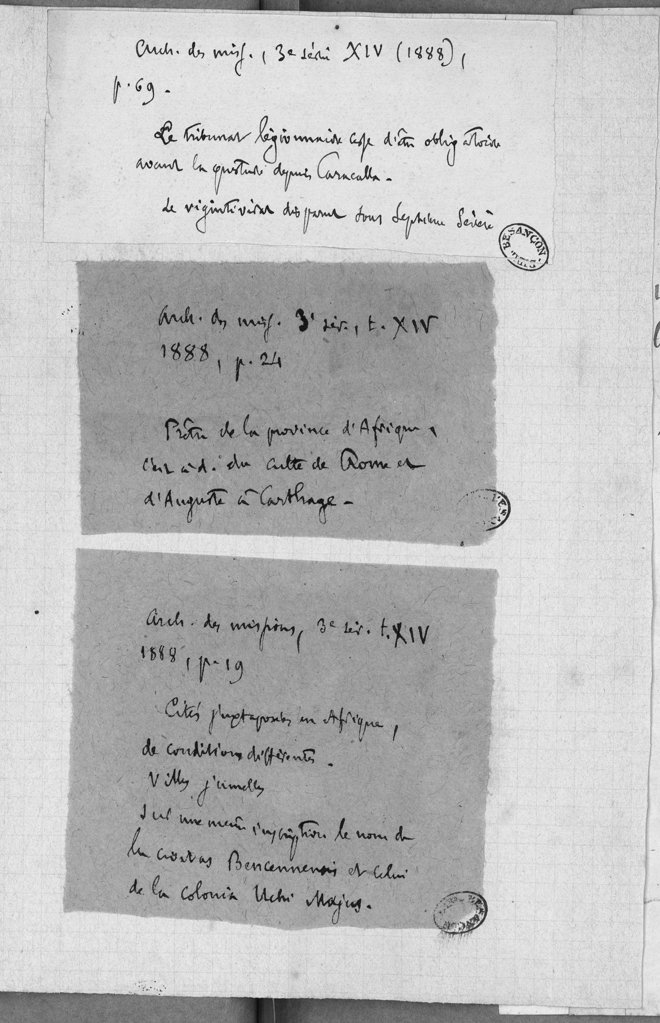 Arch. des miss., 3e série XIV (1888),
p. 69.
Le tribunat légionnaire cesse d'être obligatoire
avant la questure depuis Caracalla.
Le vigintivirat disparait sous Septime Sévère
BESANÇON
Arch. des miss. 3e sér., t. XIV
1888, p. 24
Prêtre de la province d'Afrique,
c'est à d. du culte de Rome et
d'Auguste à Carthage.
Arch. des missions, 3e sér. t. XIV
1888, p. 19
Cités juxtaposées en Afrique,
de conditions différentes.
Villes jumelles
Sur une même inscription le nom de
la civitas Bencennensis et celui
de la colonia Uchi Majus.